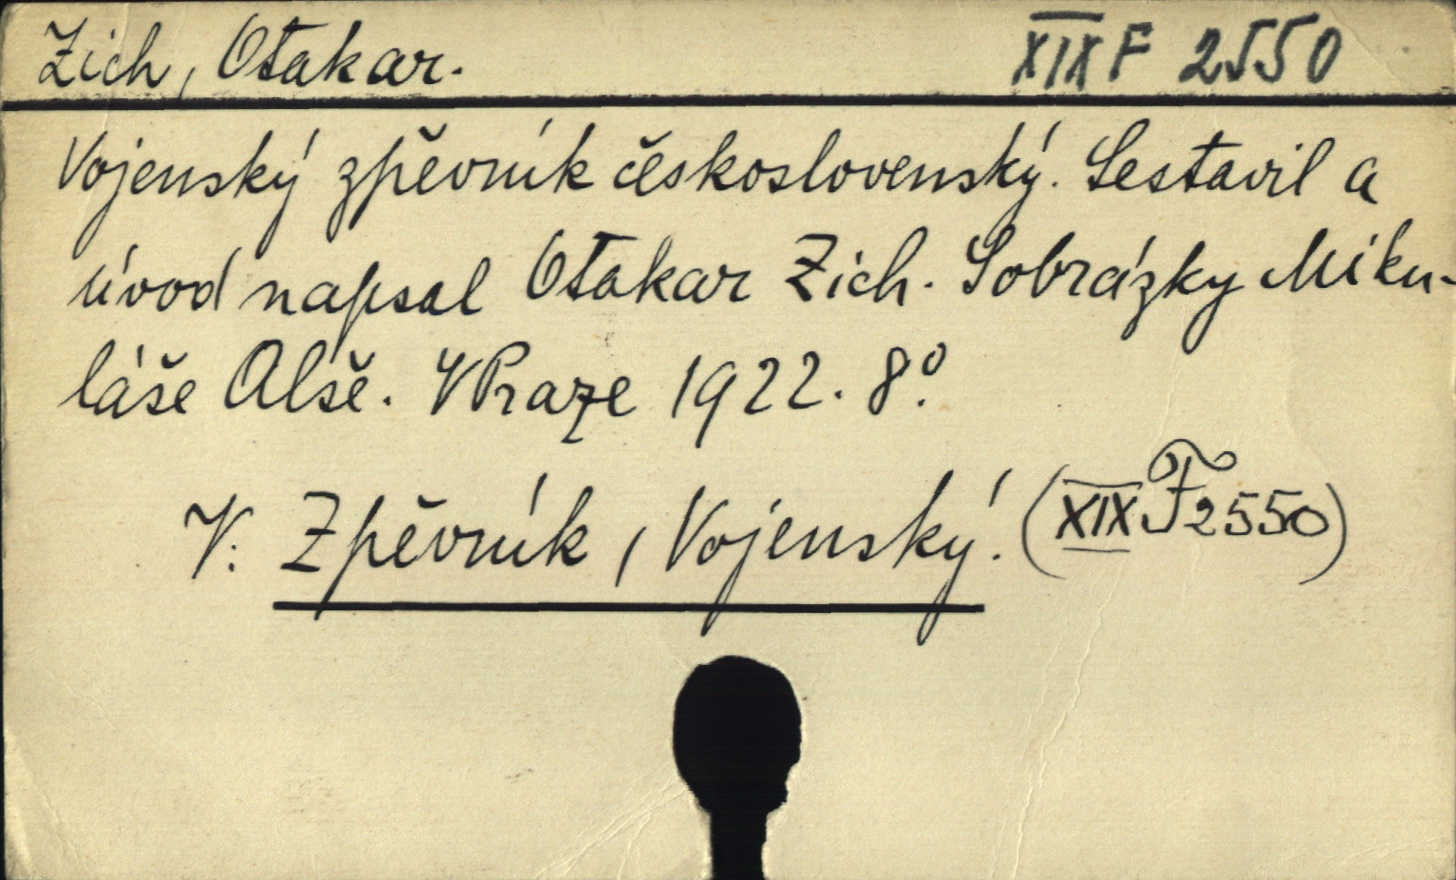 Zich, Otakar. XIX F 2550
Vojenský zpěvník československý. Sestavil a
úvod napsal Otakar Zich. S obrázky Miku-
láše Alše. V Praze 1922. 8º.
V: Zpěvník, Vojenský. (XIX F 2550)